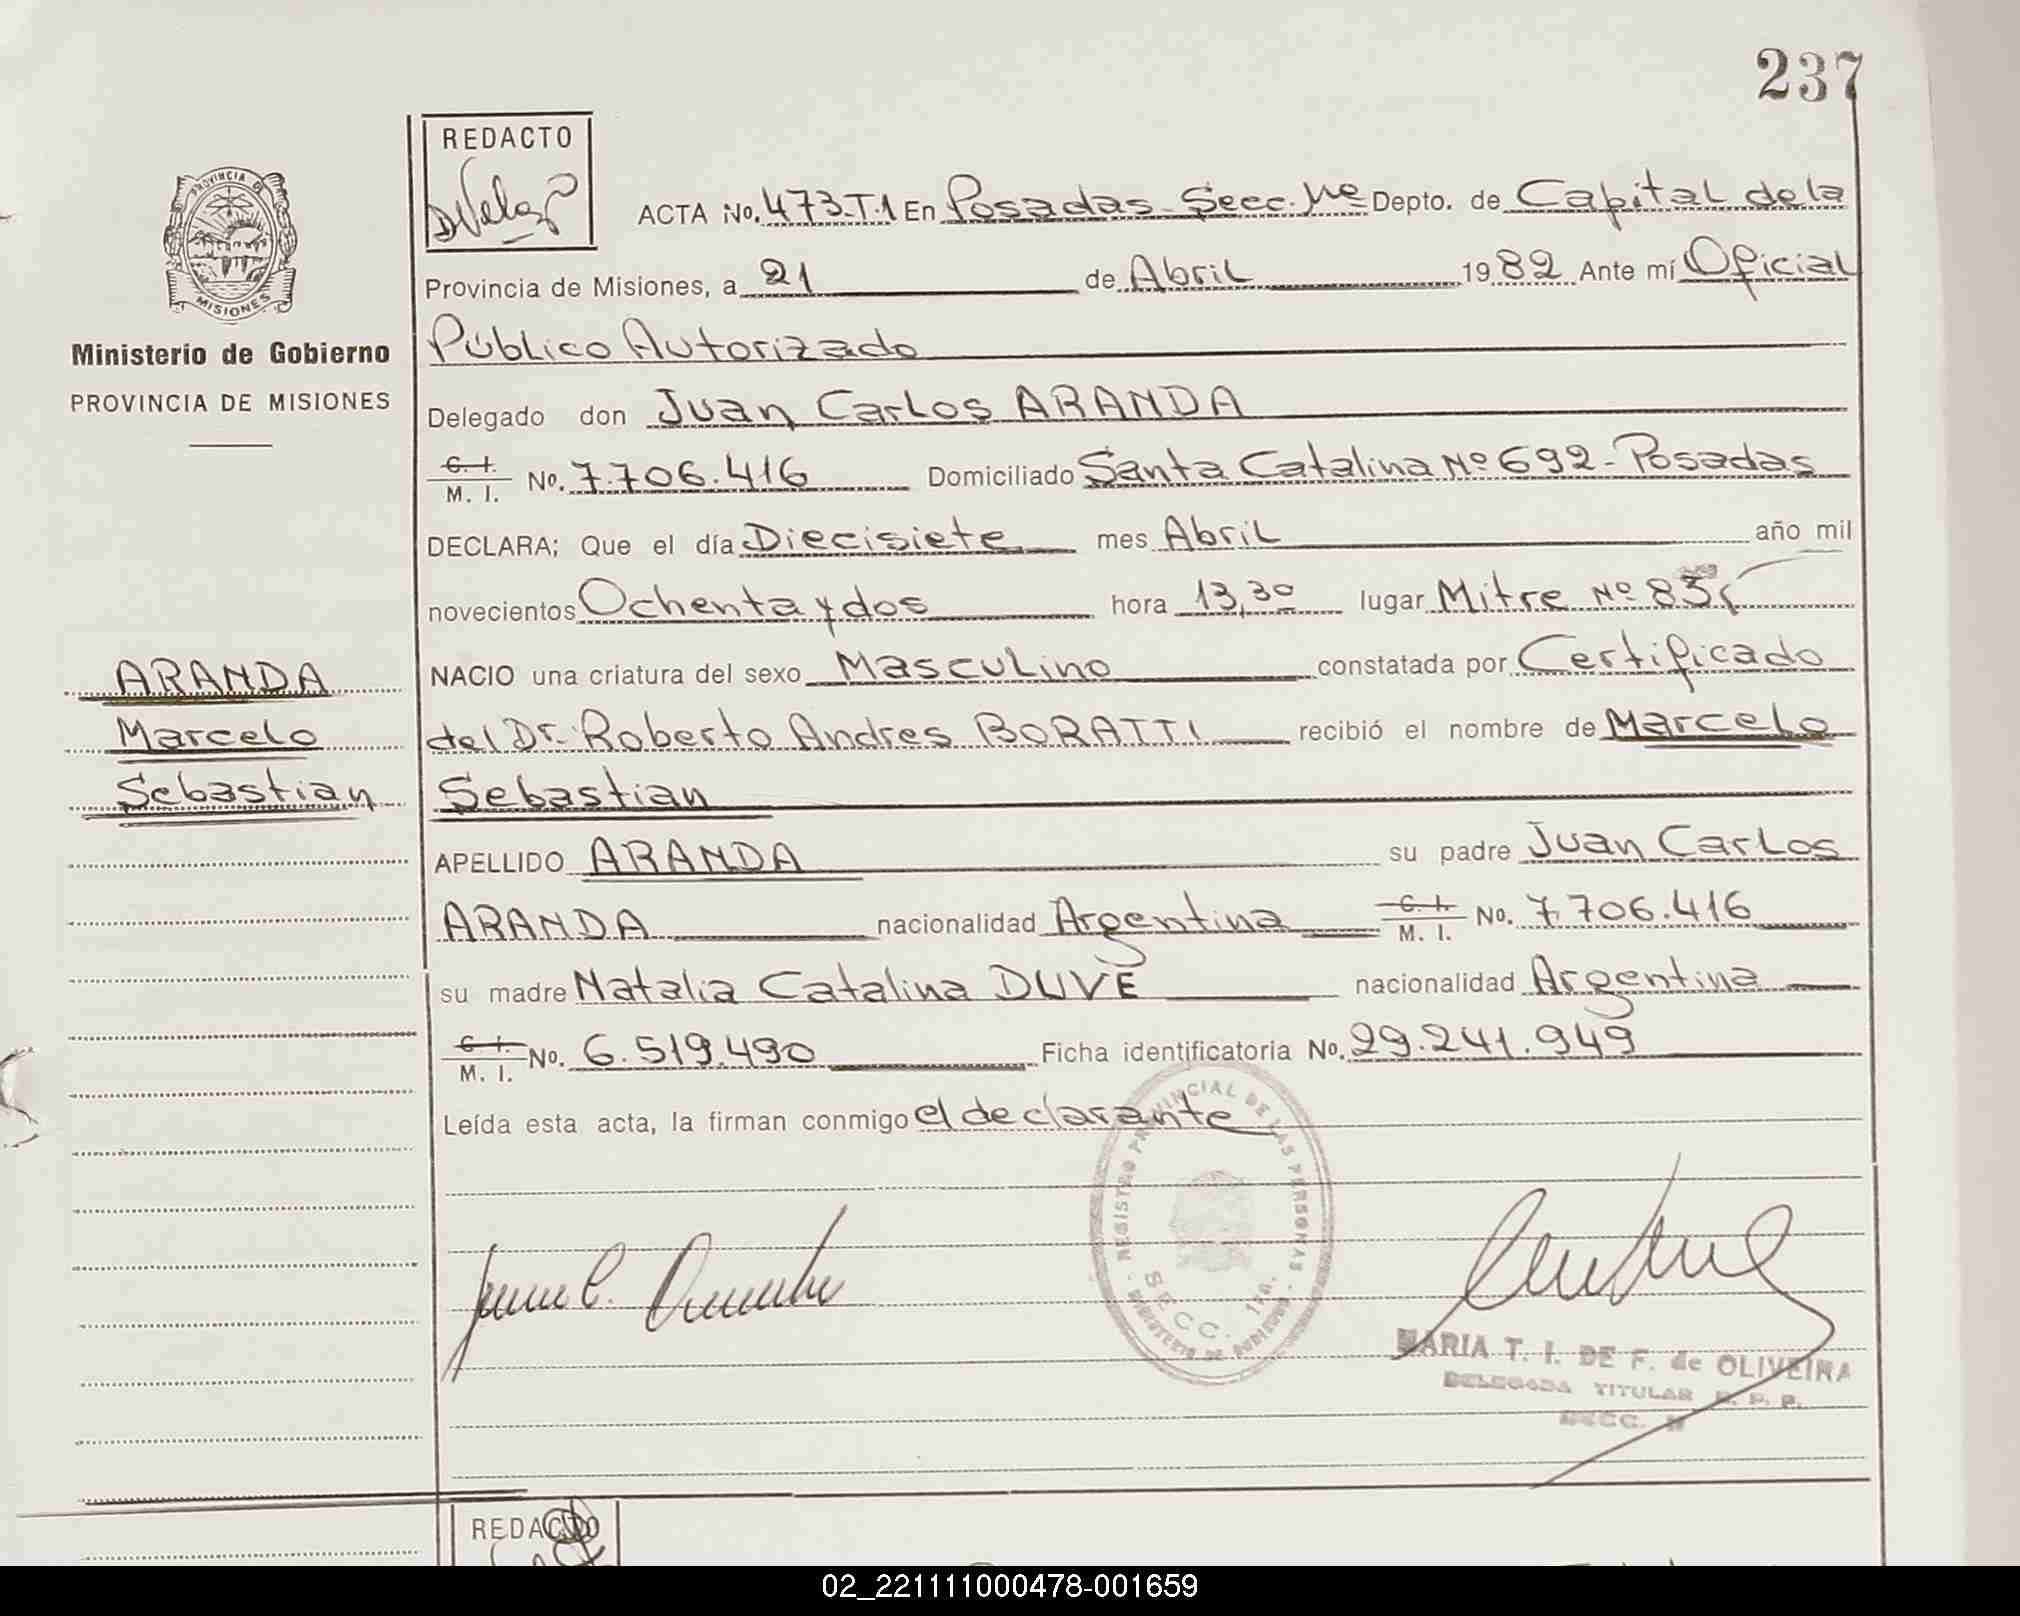 237
REDACTO
PROVINCIA DE
MISIONES
ACTA No. 473-T.1 En Posadas - Secc. 1ra Depto. de Capital de la
Provincia de Misiones, a 21 de Abril 1982 Ante mí Oficial
Ministerio de Gobierno
PROVINCIA DE MISIONES
Público Autorizado
Delegado don Juan Carlos ARANDA
C. I. / M. I. No. 7.706.416 Domiciliado Santa Catalina Nº 692 - Posadas
DECLARA; Que el día Diecisiete mes Abril año mil
novecientos Ochenta y dos hora 13,30 lugar Mitre Nº
ARANDA
Marcelo
Sebastian
NACIO una criatura del sexo Masculino constatada por Certificado
del Dr. Roberto Andres BORATTI recibió el nombre de Marcelo
Sebastian
APELLIDO ARANDA su padre Juan Carlos
ARANDA nacionalidad Argentina C. I. / M. I. No. 7.706.416
su madre Natalia Catalina DUVE nacionalidad Argentina
C. I. / M. I. No. 6.519.490 Ficha identificatoria No. 29.241.949
Leída esta acta, la firman conmigo el declarante
REGISTRO PROVINCIAL DE LAS PERSONAS
SECC. 1ra.
MINISTERIO DE GOBIERNO
Juan C. Aranda
MARIA T. I. DE F. de OLIVEIRA
DELEGADA TITULAR R. P. P.
SECC.
REDACTO
02_221111000478-001659